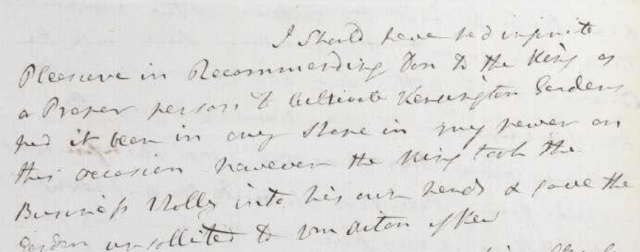 I should have had infinite
Pleasure in Recommending You to the King as
a Proper person to Cultivate Kensington Gardens
had it been in any Shape in my power on
this occasion however the King took the
Business Wholly into his own hands & gave the
Garden unsollited to Aiton of Kew